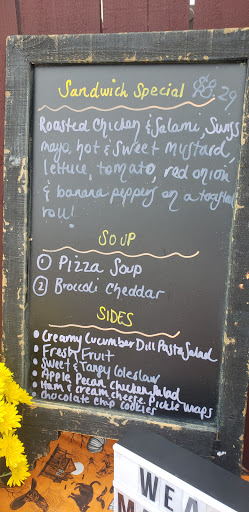 Sandwich Special 29
Roasted Chicken & Salami, Swiss
mayo, hot & Sweet Mustard,
lettuce, tomato, red onion
& banana peppers on a toasted
roll!
SOUP
① Pizza Soup
② Broccoli Cheddar
SIDES
• Creamy Cucumber Dill Pasta Salad
• Fresh Fruit
• Sweet & Tangy Coleslaw
• Apple Pecan Chicken Salad
• Ham & cream cheese pickle wraps
• chocolate chip cookies
WEA
MA